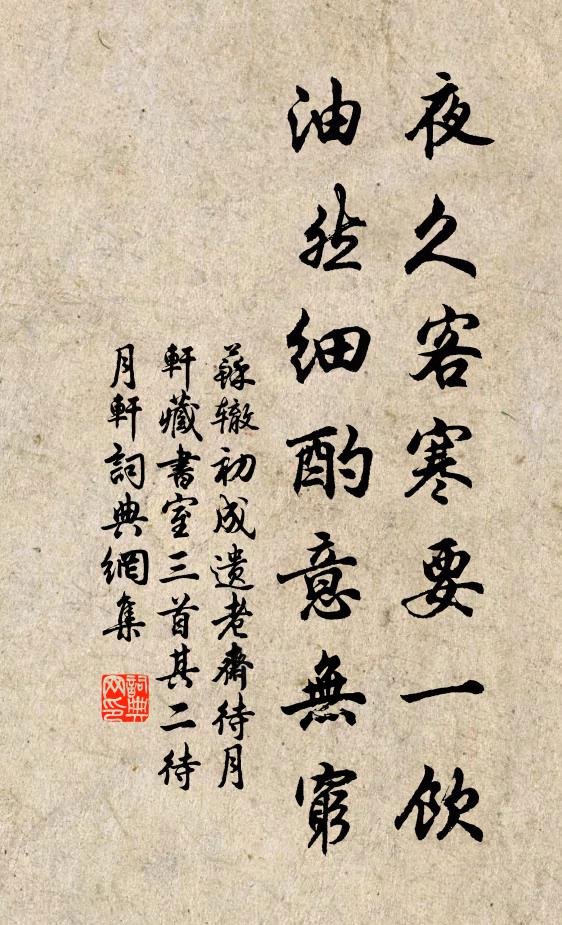 夜久客寒要一飲
油然細酌意無窮
蘇辙初成遺老齋待月
軒藏書室三首其二待
月軒詞典網集
詞典网印